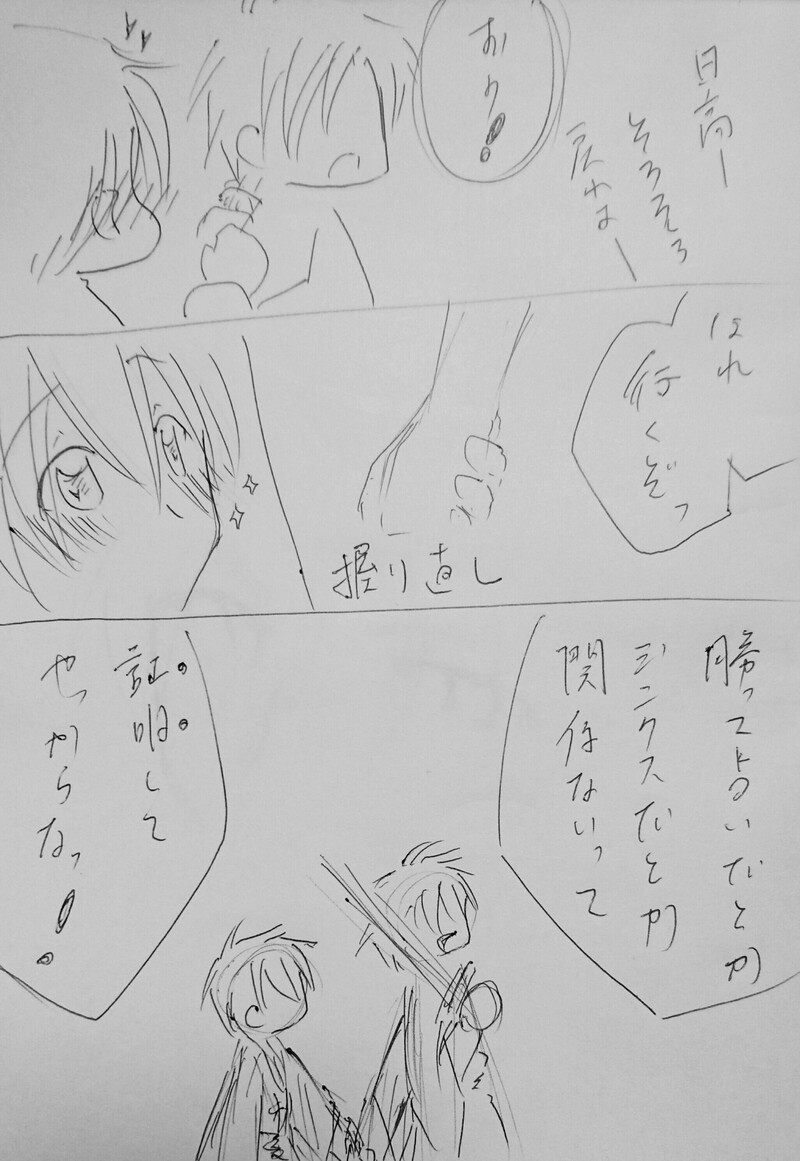 日高ー
そろそろ
戻れよー
おう!
ほれ
行くぞっ
握り直し
勝って
だとか
ジンクスだとか
関係ないって
証明して
やっからなっ!